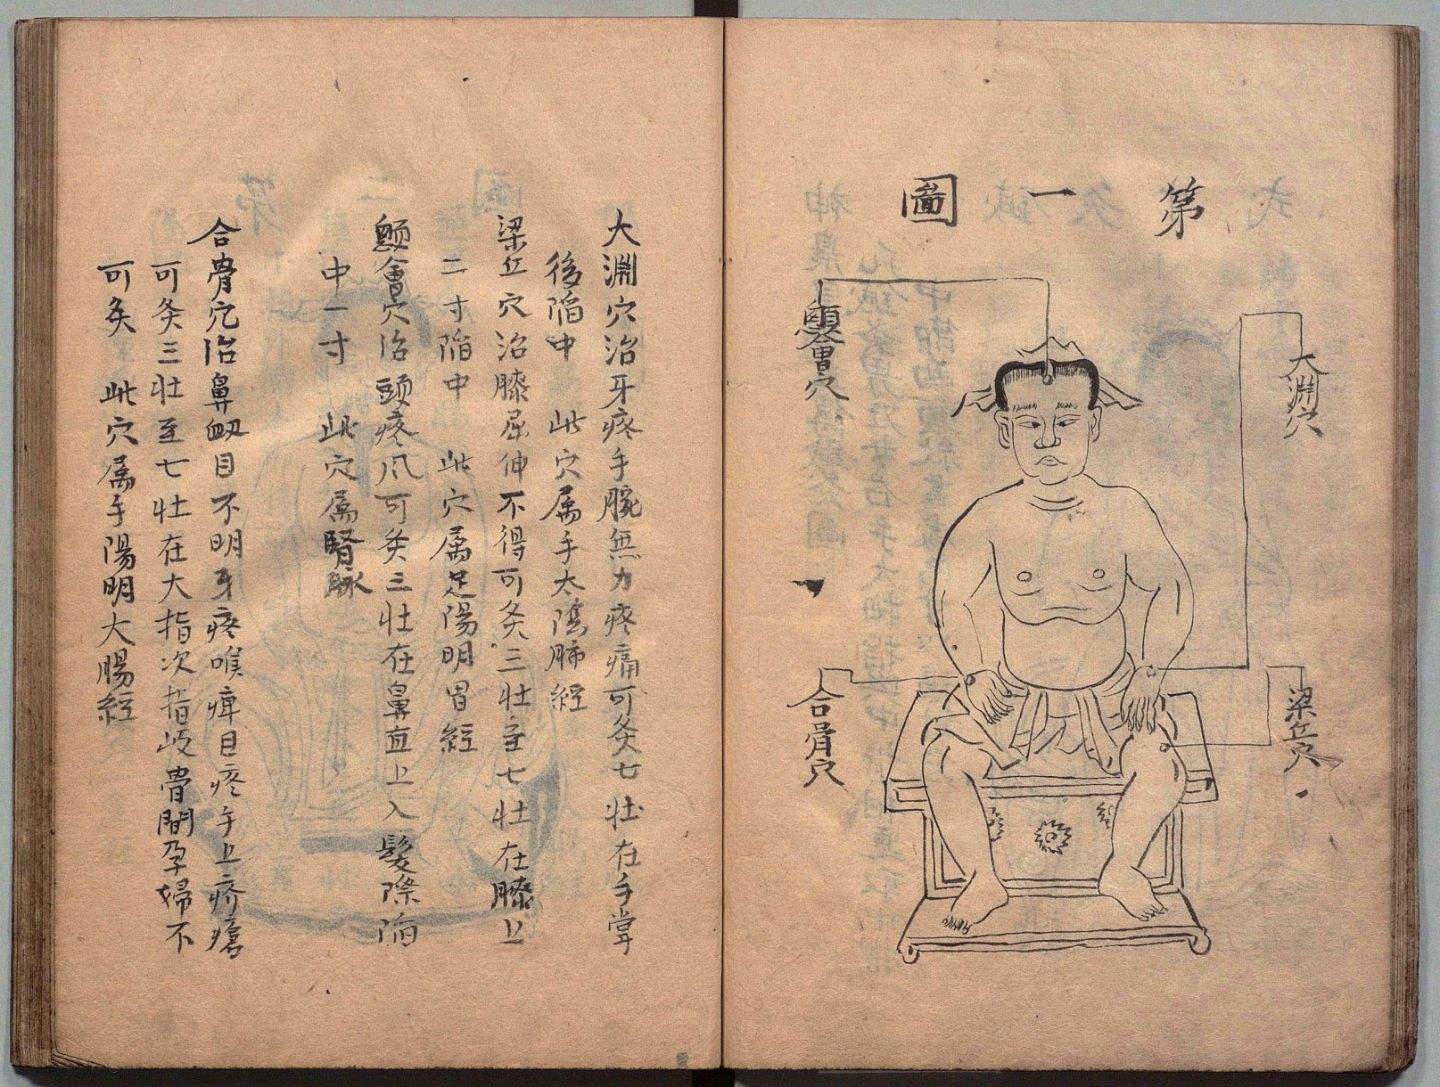 第一圖
大淵穴
梁丘穴
顖會穴
合骨穴
大淵穴治牙疼手腕無力疼痛可灸七壯在手掌
後陷中 此穴属手太陰肺經
梁丘穴治膝屈伸不得可灸三壯至七壯在膝上
二寸陷中 此穴属足陽明胃經
顖會穴治頭疼风可灸三壯在鼻直上入髮際陷
中一寸 此穴属腎脉
合骨穴治鼻衂目不明牙疼喉痺目疼手上疥瘡
可灸三壯至七壯在大指次指岐骨間孕婦不
可灸 此穴属手陽明大腸經